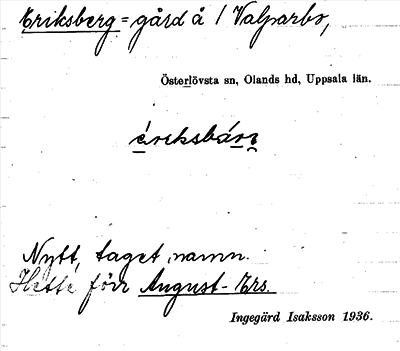 Eriksberg = gård å / Valparbo,
Österlövsta sn, Olands hd, Uppsala län.
ériksbárɲ
Nytt, taget namn.
Hette förr August-Ers.
Ingegärd Isaksson 1936.